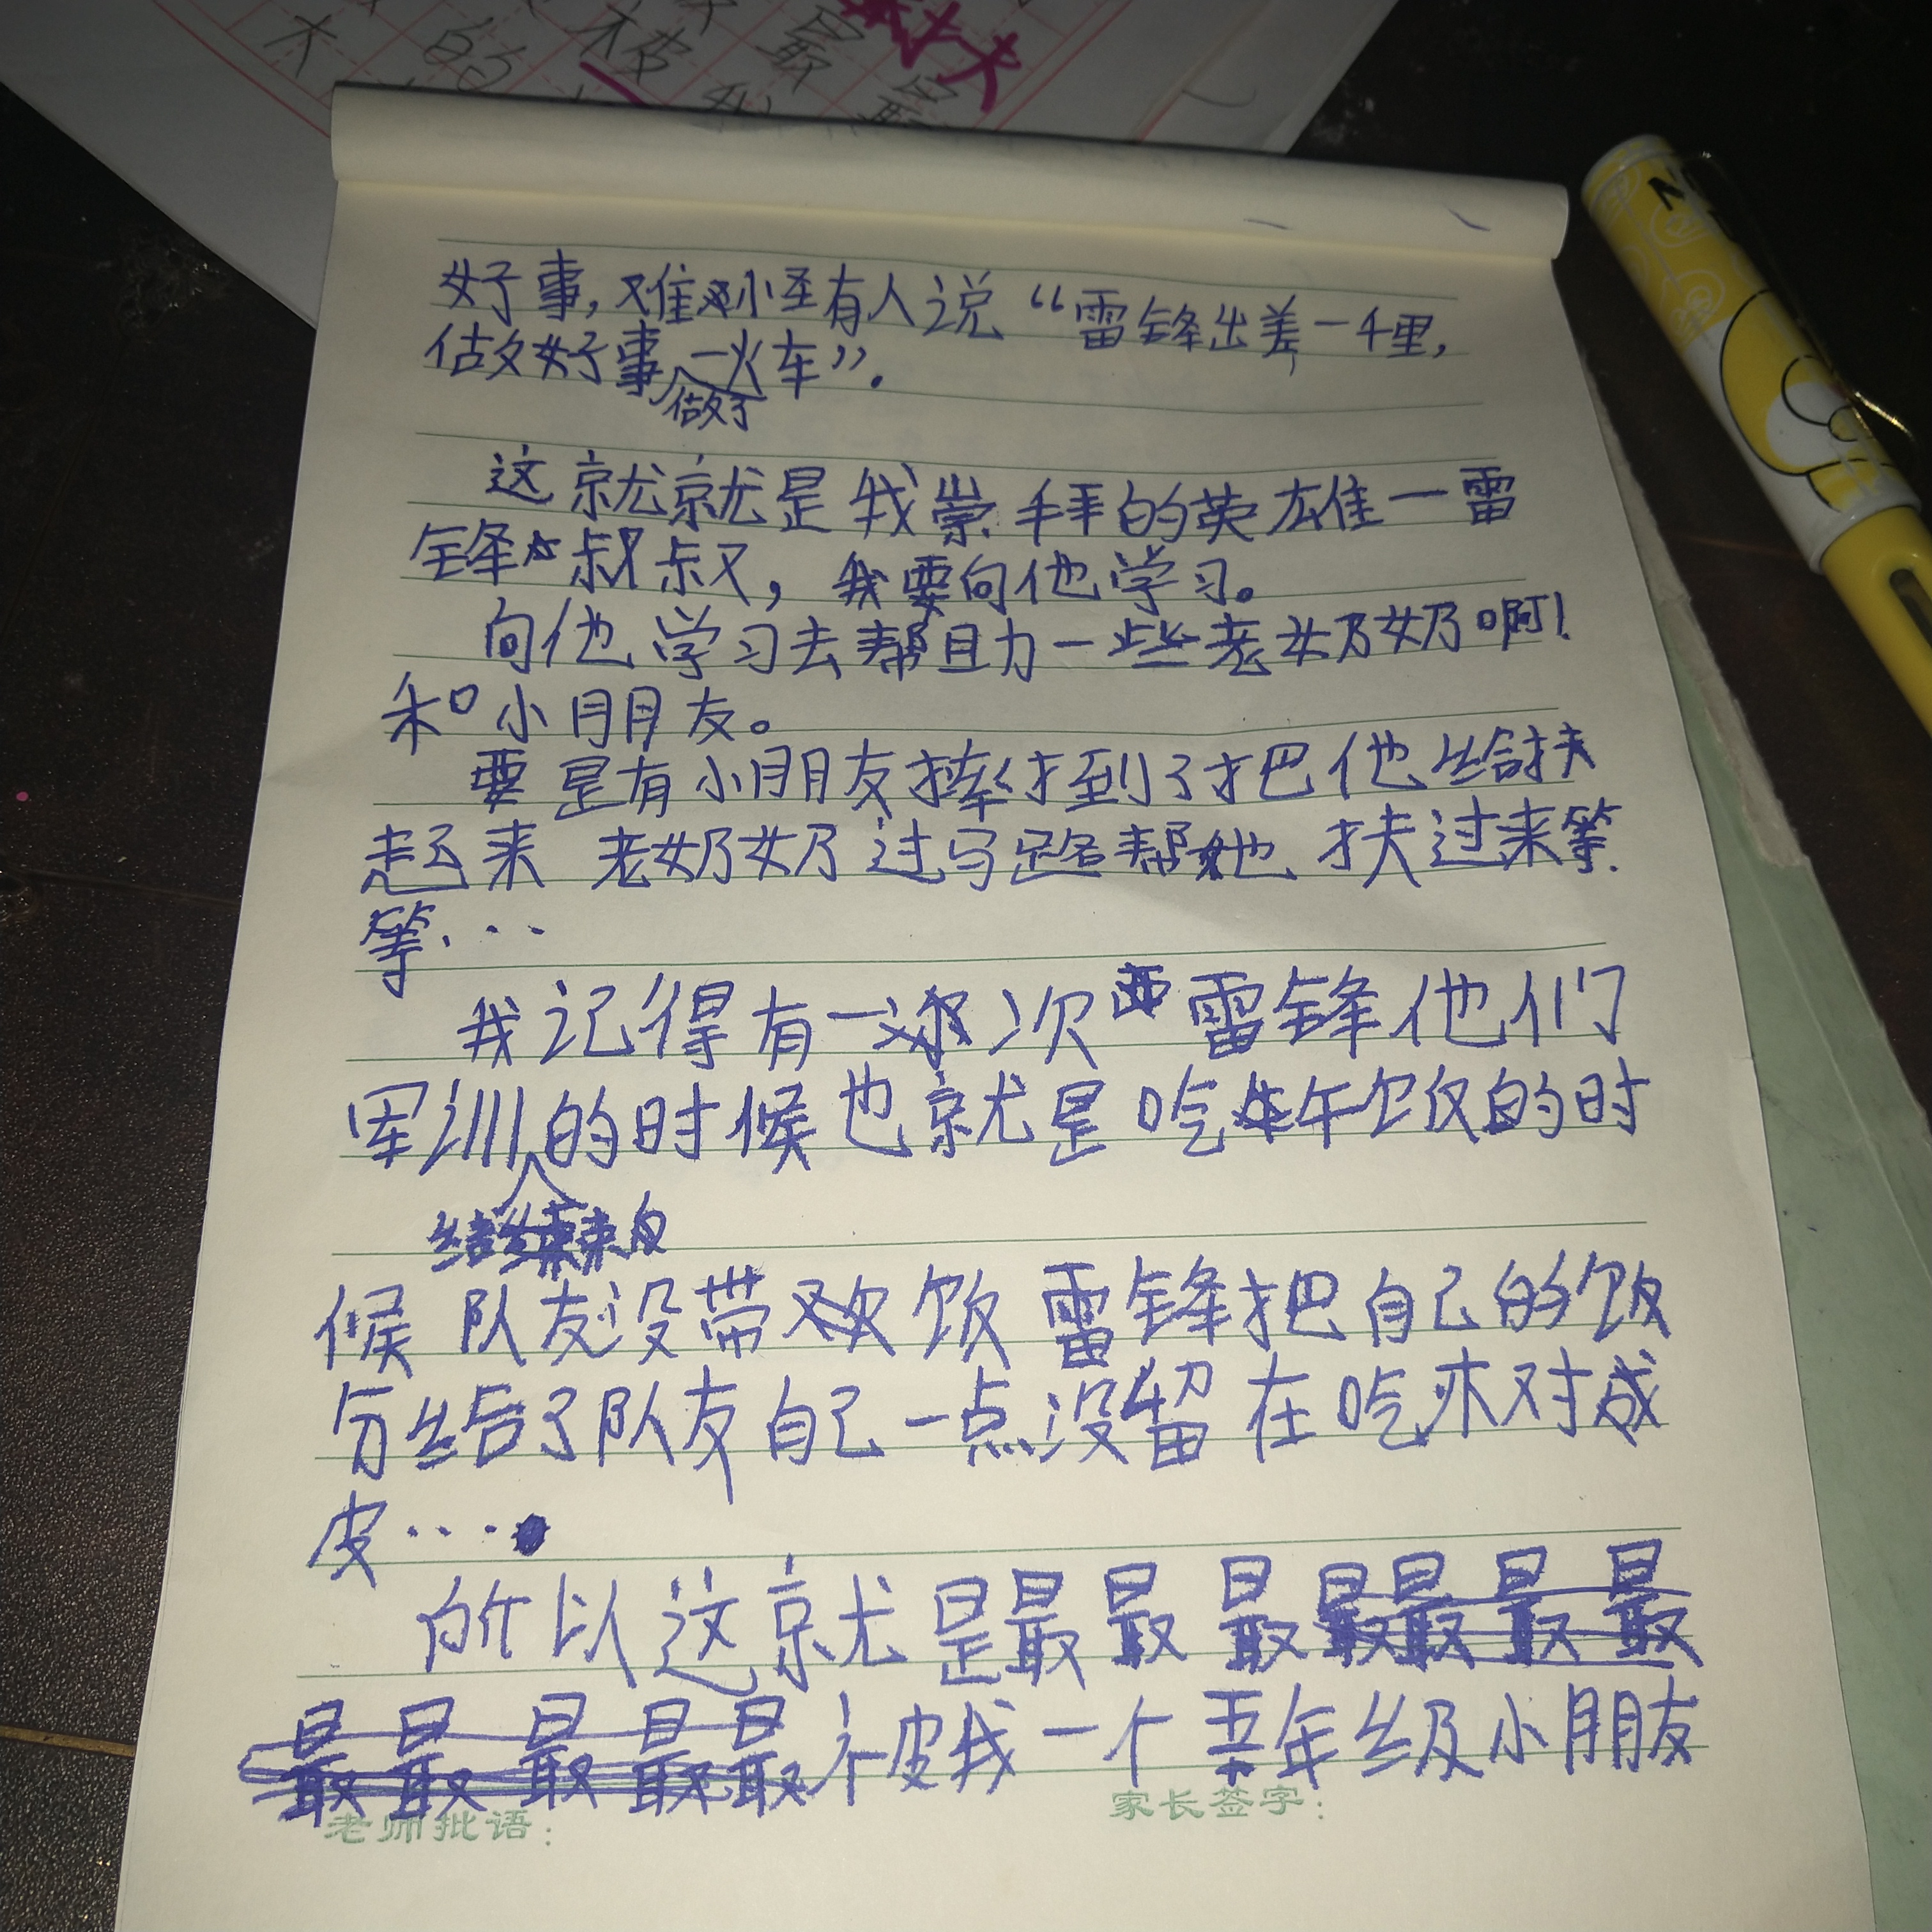 好事，难怪有人说“雷锋出差一千里，
做好事做了一火车”。
这就是我崇拜的英雄一雷
锋叔叔，我要向他学习。
向他学习去帮助一些老奶奶啊！
和小朋友。
要是有小朋友摔倒了把他给扶
起来 老奶奶过马路帮她扶过来等
等...
我记得有一次雷锋他们
军训结束的时候也就是吃午饭的时
候 队友没带饭 雷锋把自己的饭
分给了队友自己一点没留在吃
皮....
所以这就是最最最
被我一个五年级小朋友
老师批语：
家长签字：